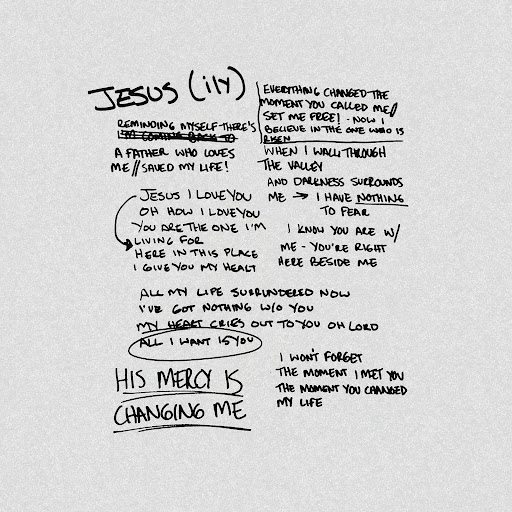 JESUS (ily)
REMINDING MYSELF THERE'S
I'M COMING BACK TO
A FATHER WHO LOVES
ME // SAVED MY LIFE!
JESUS I LOVE YOU
OH HOW I LOVE YOU
YOU ARE THE ONE I'M
LIVING FOR
HERE IN THIS PLACE
I GIVE YOU MY HEALT
ALL MY LIFE SURRUNDERED NOW
I'VE GOT NOTHING W/O YOU
MY HEART CRIES OUT TO YOU OH LORD
ALL I WANT IS YOU
HIS MERCY IS
CHANGING ME
EVERYTHING CHANGED THE
MOMENT YOU CALLED ME//
SET ME FREE! - NOW I
BELIEVE IN THE ONE WHO IS
RISEN
WHEN I WALK THROUGH
THE VALLEY
AND DARKNESS SURROUNDS
ME → I HAVE NOTHING
TO FEAR
I KNOW YOU ARE W/
ME - YOU'RE RIGHT
HERE BESIDE ME
I WON'T FORGET
THE MOMENT I MET YOU
THE MOMENT YOU CHANGED
MY LIFE